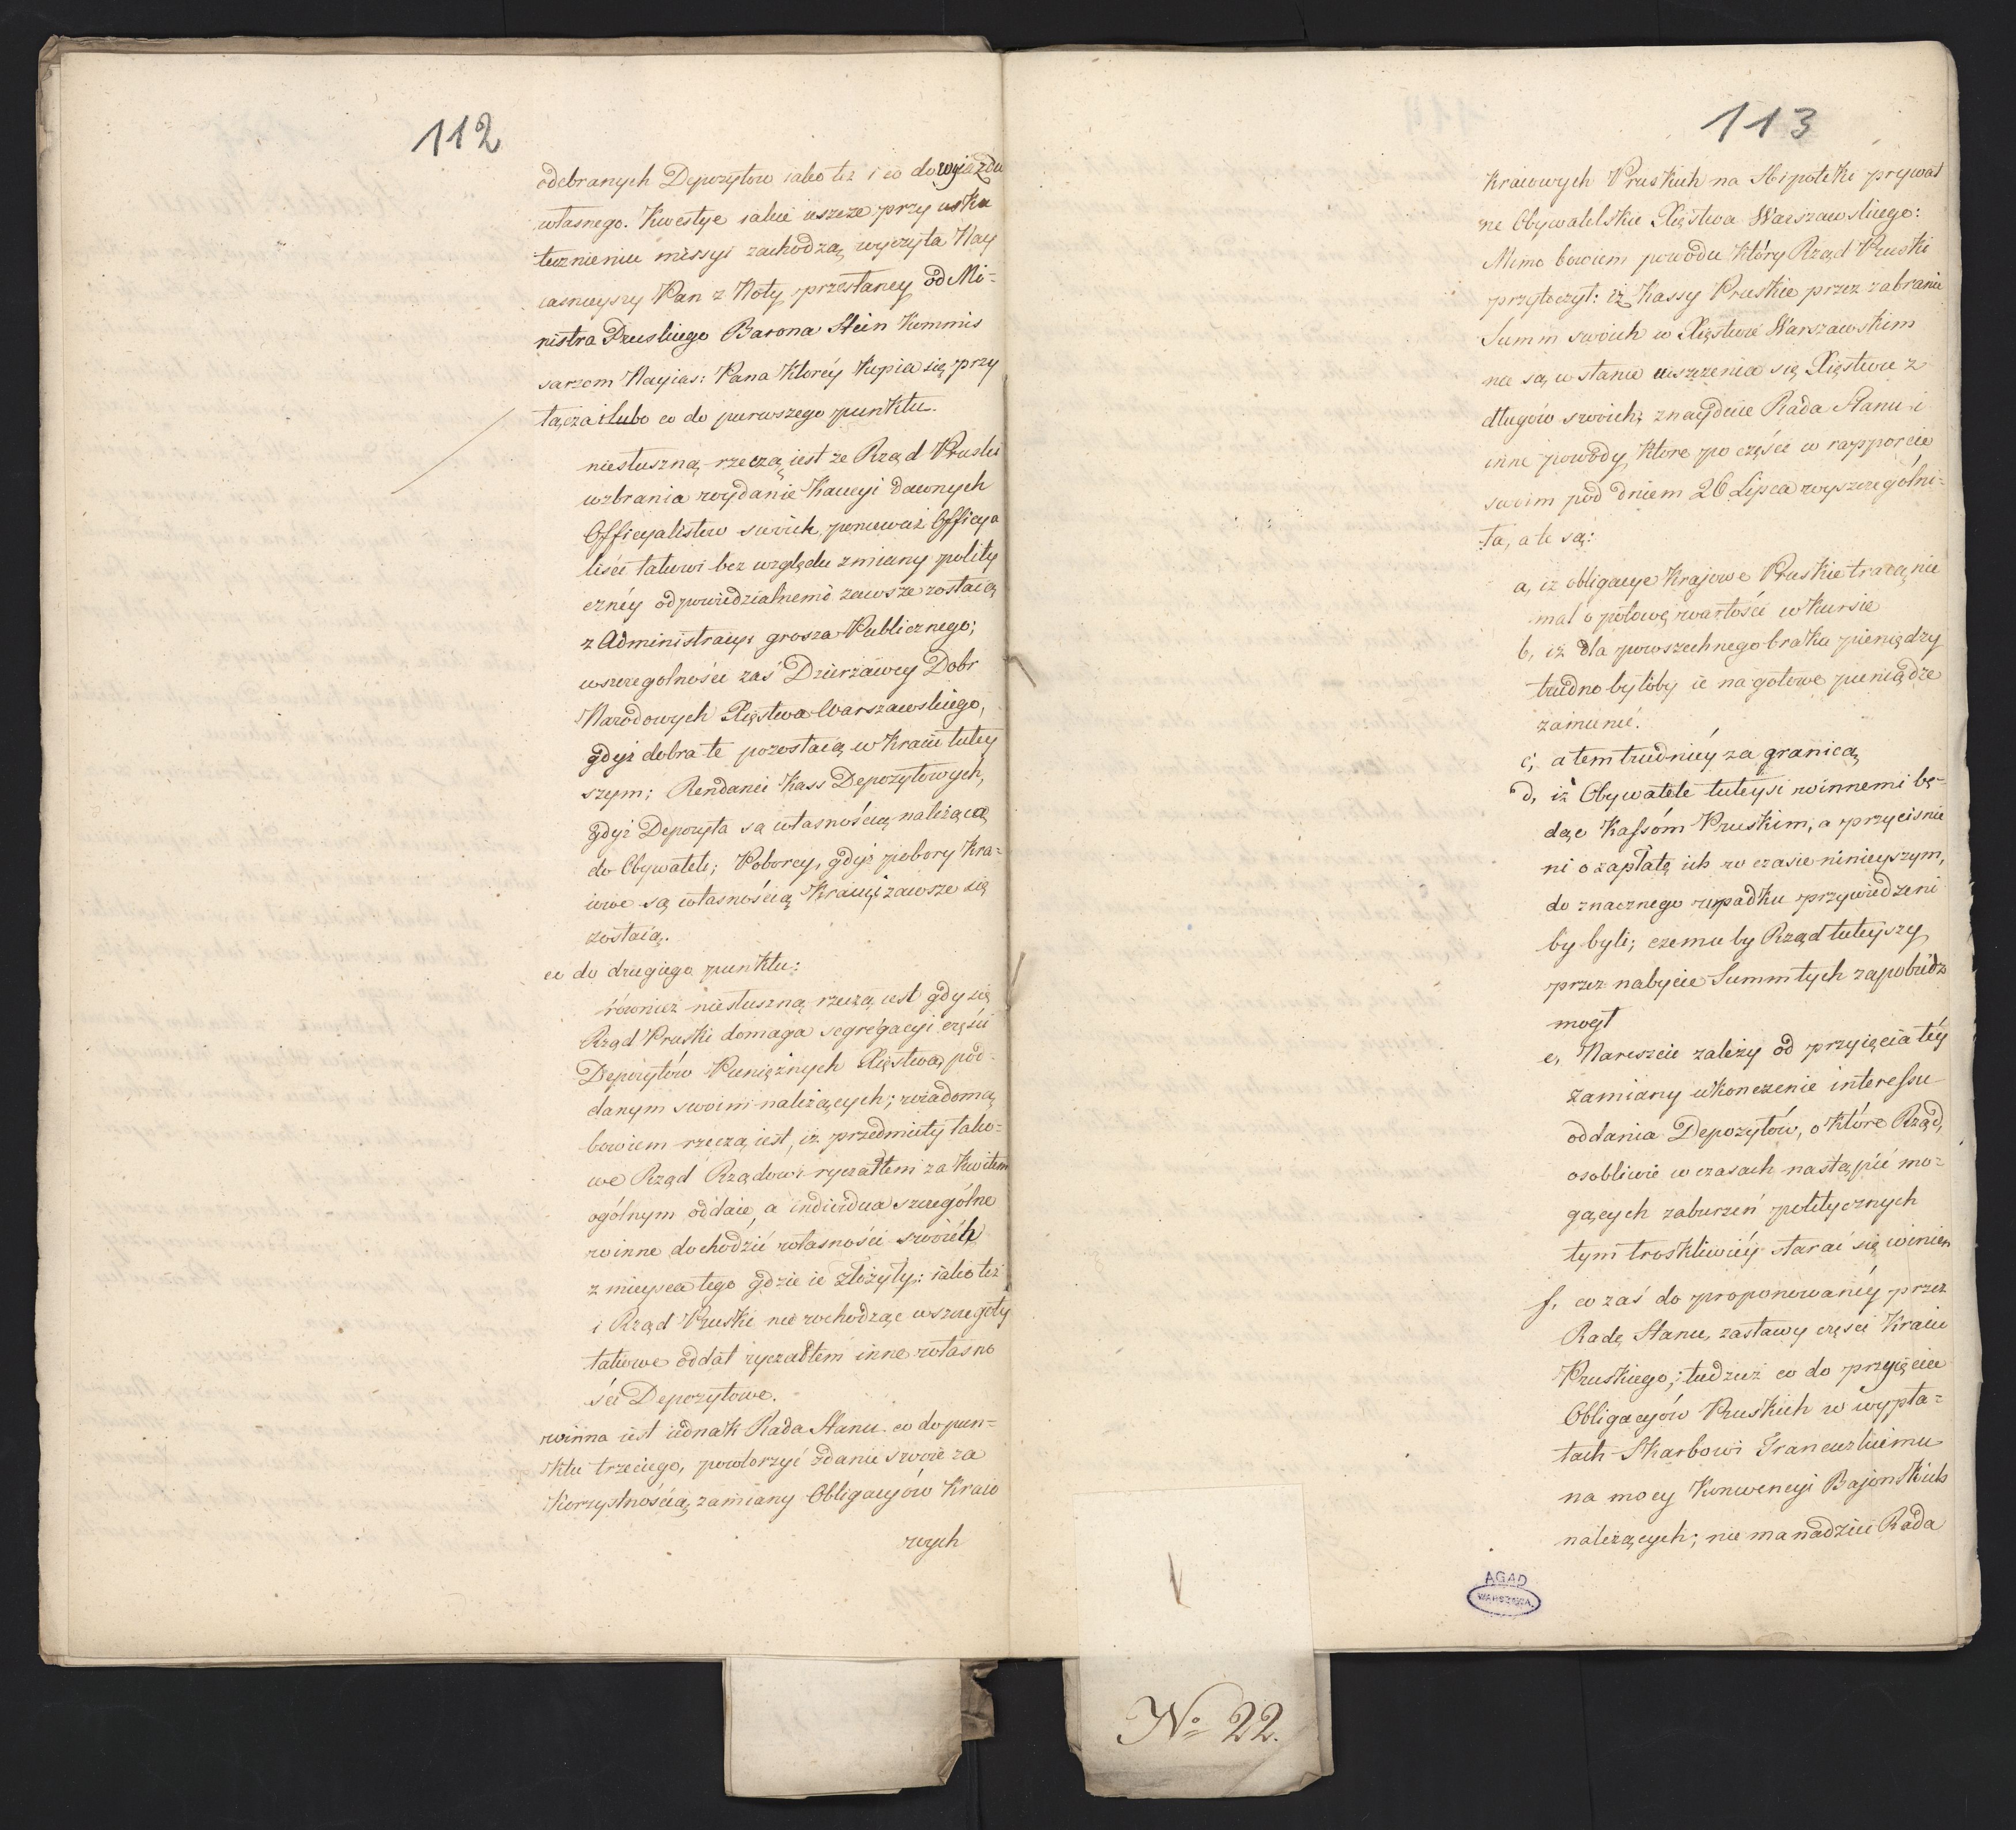 112
odebranych Depozytow iako też i co do wyiazdu
własnego. Kwestye iakie ieszcze przy usku
tecznieniu missyi zachodzą wyczyta Nay
iasnieyszy Pan z Noty przesłaney od Mi=
nistra Pruskiego Barona Stein Kommis
sarzom Nayias: Pana Ktoréy Kopia się przy
tącza i lubo co do pierwszego punktu.
niesłuszną rzeczą iest że Rząd Pruski
wzbrania wydanie Kaucyi dawnych
Officyalistow swoich, ponieważ Officya
liści takowi bez względu zmiany polity
cznéy odpowiedzialnemi zawsze zostaią
z Administracyi grosza Publicznego;
wszczegolności zaś Dzierżawcy Dobr
Narodowych Xięstwa Warszawskiego,
gdyż dobra te pozostaią w Kraiu tutey
szym; Rendanci Kass Depozytowych,
gdyż Depozyta są własnością należącą
do Obywateli; Poborcy, gdyż pobory Kra=
iowe są własnością Kraiu i zawsze się
zostaią.
co do drugiego punktu:
rownież niesłuszną rzeczą iest gdy się
Rząd Pruski domaga segregacyi części
Depozytów Pieniężnych Xięstwa pod=
danym swoim należących; wiadomą
bowiem rzeczą iest, iż przedmioty tako=
we Rząd Rządowi ryczałtem za Kwitem
ogólnym oddaie, a indiwidua szczególne
winne dochodzić własności swoich
z mieysca tego gdzie ie złożyły: iako też
i Rząd Pruski nie wchodząc w szczegoły
takowe oddał ryczałtem inne własno
ści Depozytowe.
winna iest iednak Rada Stanu co do pun=
Ktu trzeciego, powtorzyć zdanie swoie za
Korzystnością zamiany Obligacyów Kraio
wych
113
Kraiowych Pruskich na Hipoteki prywat
ne Obywatelskie Xięstwa Warszawskiego:
Mimo bowiem powodu, Który Rząd Pruski
przytoczył: iż Kassy Pruskie przez zabranie
Summ swoich w Xięstwie Warszawskim
nie są w stanie uiszczenia się Xięstwu z
długów swoich; znayduie Rada Stanu i
inne powody, Ktore po części w rapporcie
swoim pod dniem 26 Lipca wyszczególni=
ła, a te są:
a, iż obligacye Krajowe Pruskie tracą nie
mal o połowę wartości w Kursie
b, iż dla powszechnego braku pieniędzy
trudno byłoby ie na gotowe pieniądze
zamienić.
c, a tem trudniéy za granicą
d, iż Obywatele tuteysi winnemi bę=
dąc Kassóm Pruskim, a przyciśnie
ni o zapłatę ich w czasie ninieyszym,
do znacznego upadku przywiedzeni
by byli; czemu by Rząd tuteyszy
przez nabycie Summ tych zapobiedz
mogł
e, Nareszcie zależy od przyięcia téy
zamiany ukonczenie interessu
oddania Depozytów, o Które Rząd,
osobliwie w czasach nastąpić mo=
gących zaburzeń politycznych
tym troskliwiéy starać się winien
f, co zaś do proponowanéy przez
Radę Stanu, zastawy części Kraiu
Pruskiego; tudzież co do przyięcia
Obligacyów Pruskich w wypła=
tach Skarbowi Francuzkiemu
na mocy Konwencyi Bajonskich
należących; nie ma nadziei Rada
AGAD
WARSZAWA
No 22.